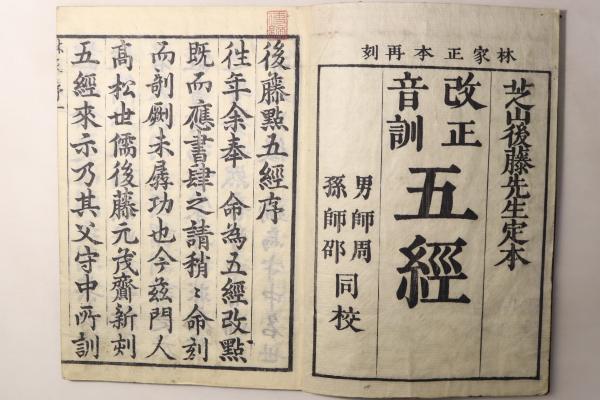 林家正本再刻
芝山後藤先生定本
改正
音訓
五經
男師周
孫師邵
同校
後藤點五經序
徃年余奉 命為五經改點
既而應書肆之請稍〻命刻
而剞劂未竣功也今茲門人
高松世儒後藤元茂齎新刻
五經來示乃其父守中所訓